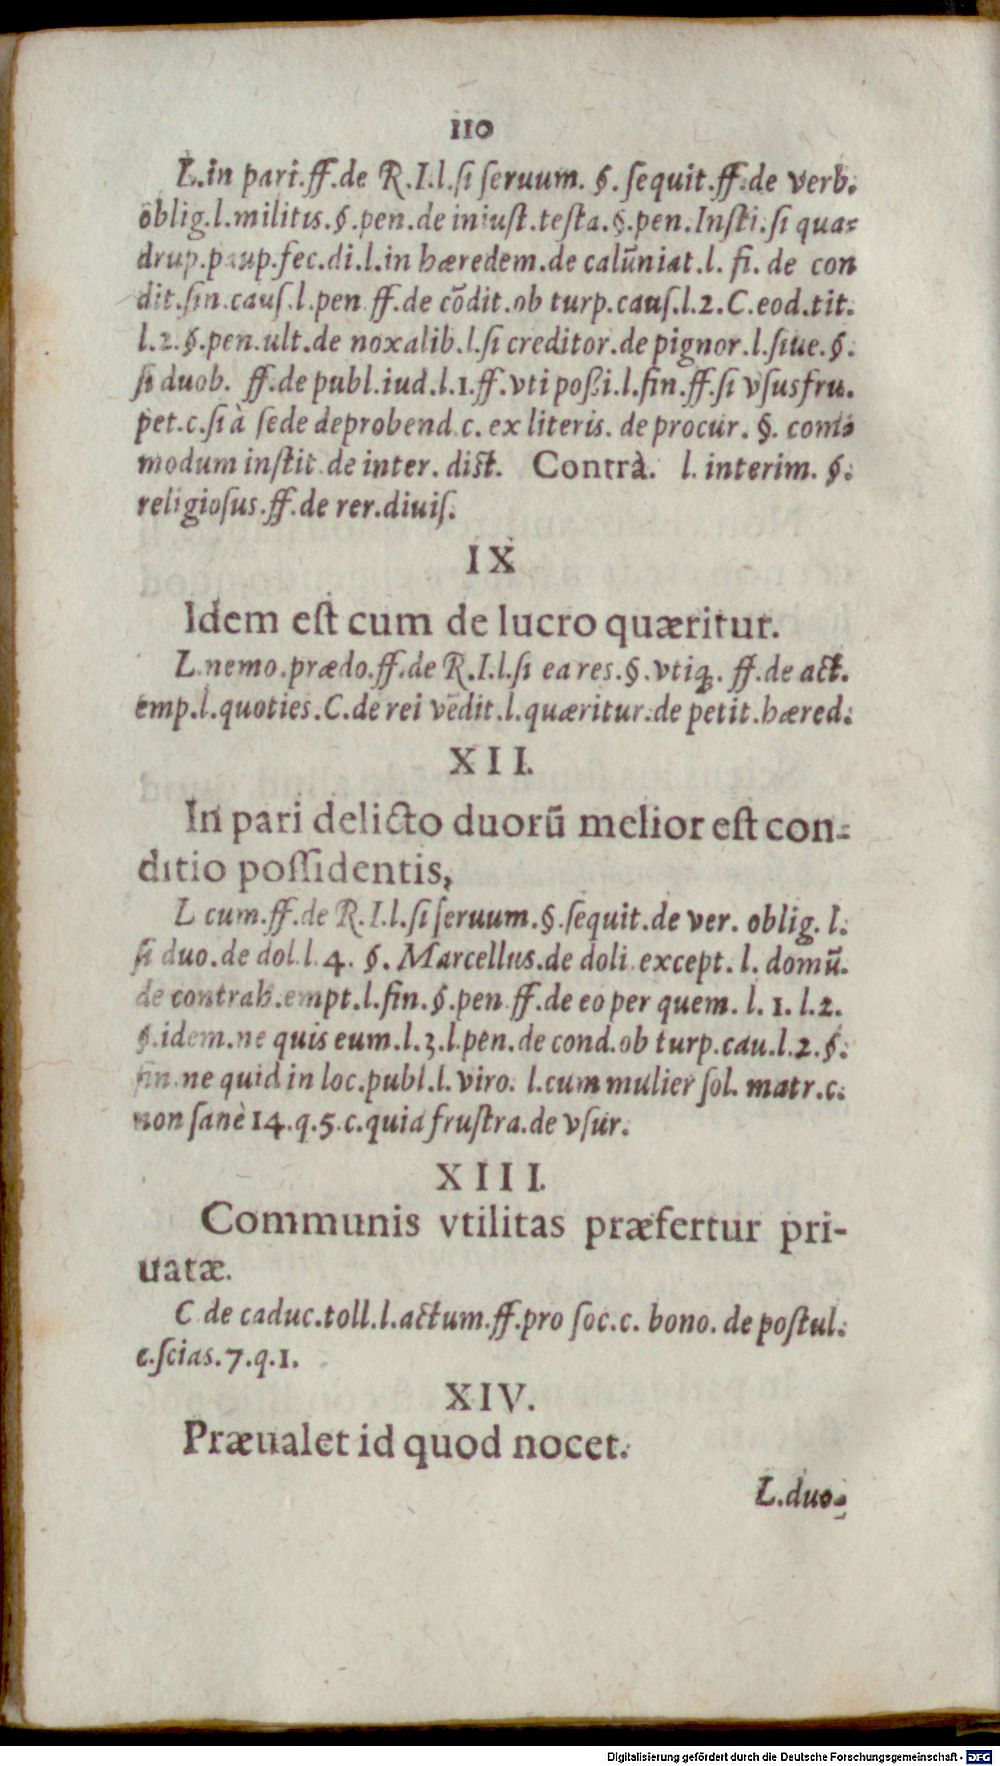 110
L.in pari.ff.de R.I.l.ſi ſeruum. §. ſequit.ff.de verb.
oblig.l.militis.§.pen.de iniuſt.teſta.§.pen.Inſti.ſi qua-
drup.paup.fec.di.l.in hæredem.de calūniat.l. fi. de con
dit.ſin.cauſ.l.pen ff.de cōdit.ob turp.cauſ.l.2.C.eod.tit.
l.2.§.pen.ult.de noxalib.l.ſi creditor.de pignor.l.ſiue.§.
ſi duob. ff.de publ.iud.l.1.ff.vti poßi.l.fin.ff.ſi vſusfru.
pet.c.ſi à ſede deprobend.c. ex literis. de procur. §. com-
modum inſtit.de inter. dict. Contrà. l. interim. §.
religioſus.ff.de rer.diuiſ.
IX
Idem eſt cum de lucro quæritur.
L.nemo.prædo.ff.de R.I.l.ſi ea res.§.vtiq. ff.de act.
emp.l.quoties.C.de rei vēdit.l.quæritur.de petit.hæred.
XII.
In pari delicto duorū melior eſt con-
ditio poſſidentis,
L cum.ff.de R.I.l.ſi ſeruum.§.ſequit.de ver. oblig. l.
ſi duo.de dol.l.4. §. Marcellus.de doli except. l. domū.
de contrah.empt.l.fin.§.pen ff.de eo per quem. l. 1. l.2.
§.idem.ne quis eum.l.3.l.pen.de cond.ob turp.cau.l.2.§.
fin.ne quid in loc.publ.l. viro. l.cum mulier ſol. matr.c.
non ſanè 14.q.5.c.quia fruſtra.de vſur.
XIII.
Communis vtilitas præfertur pri-
uatæ.
C de caduc.toll.l.actum.ff.pro ſoc.c. bono. de poſtul.
c.ſcias.7.q.1.
XIV.
Præualet id quod nocet.
L.duo-
Digitalisierung gefördert durch die Deutsche Forschungsgemeinschaft - DFG